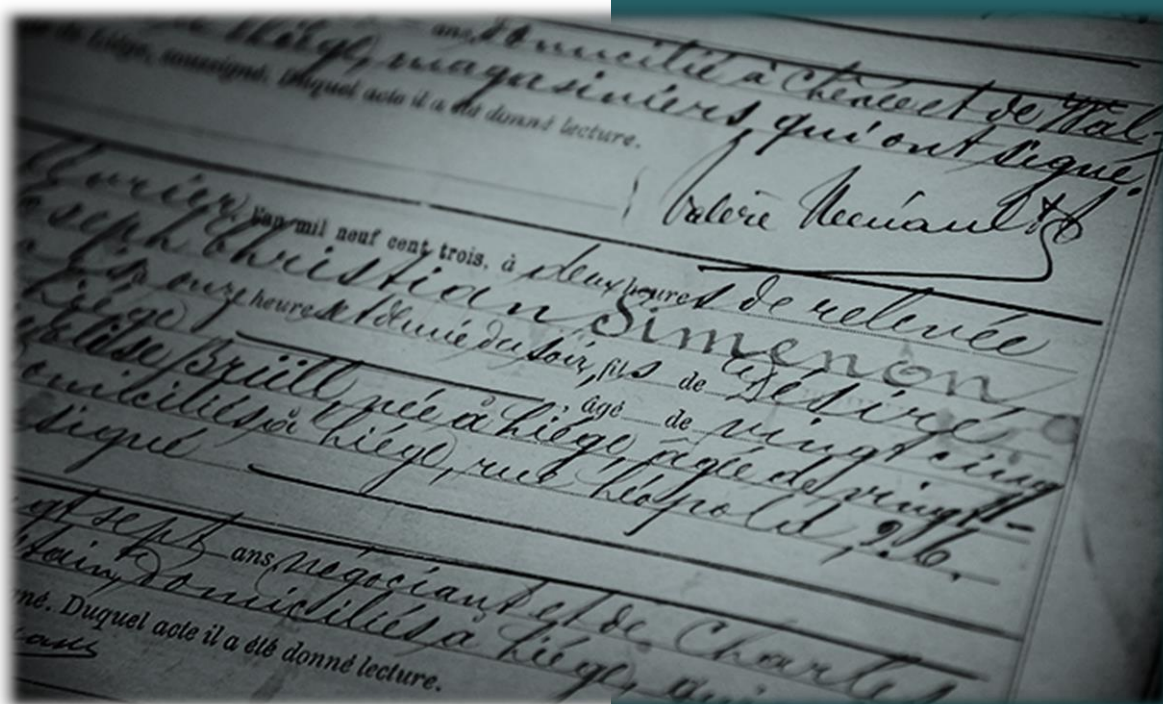 ans, domicilié à Chênée et de Wal-
de Liége, magasiniers qui ont signé.
de Liége, soussigné. Duquel acte il a été donné lecture.
Valère
février, l'an mil neuf cent trois, à deux heures de relevée
Joseph Christian Simenon
à onze heures et demie du soir, fils de Désiré
Liége âgé de vingt cinq
Brüll née à Liége, âgée de vingt-
domiciliés à Liége, rue Léopold, 26.
signé
sept ans, négociant et de Charles
domiciliés à Liége, qui
né. Duquel acte il a été donné lecture.